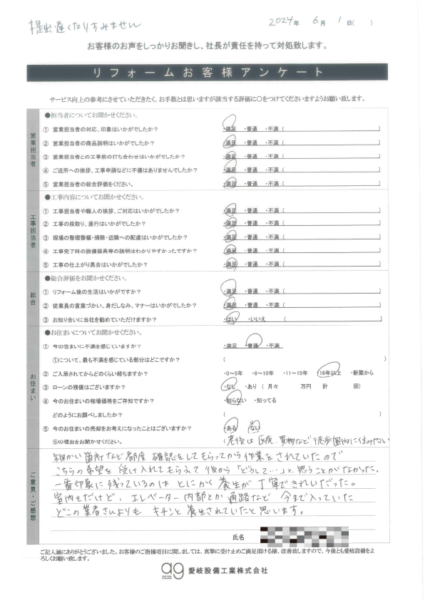 提出遅くなりすみません
2024年 6月 1日( )
お客様のお声をしっかりお聞きし、社長が責任を持って対処致します。
リフォームお客様アンケート
サービス向上の参考にさせていただきたく、お手数とは思いますが該当する評価に○をつけてくださいますようお願い致します。
営業担当者
●担当者についてお聞かせください。
① 営業担当者の対応、印象はいかがでしたか？ ・満足 ・普通 ・不満 (
② 営業担当者の商品説明はいかがでしたか？ ・満足 ・普通 ・不満 (
③ 営業担当者との工事前の打ち合わせはいかがでしたか？ ・満足 ・普通 ・不満 (
④ ご近所への挨拶、工事申請などに不備はありませんでしたか？ ・満足 ・普通 ・不満 (
⑤ 営業担当者の総合評価をください。 ・満足 ・普通 ・不満 (
工事担当者
●工事内容についてお聞かせください。
① 工事担当者や職人の挨拶、ご対応はいかがでしたか？ ・満足 ・普通 ・不満 (
② 工事の段取り、進行はいかがでしたか？ ・満足 ・普通 ・不満 (
③ 現場の整理整頓・掃除・近隣への配慮はいかがでしたか？ ・満足 ・普通 ・不満 (
④ 工事完了時の設備器具等の説明はわかりやすかったですか？ ・満足 ・普通 ・不満 (
⑤ 工事の仕上がり具合はいかがでしたか？ ・満足 ・普通 ・不満 (
総合
●総合評価をお聞かせください。
① リフォーム後の生活はいかがですか？ ・満足 ・普通 ・不満 (
② 従業員の言葉づかい、身だしなみ、マナーはいかがでしたか？ ・満足 ・普通 ・不満 (
③ お知り合いに当社を勧めていただけますか？ ・はい ・いいえ (
お住まい
●お住まいについてお聞かせください。
① 今の住まいに不満を感じていますか？ ・満足 ・普通 ・不満
①について、最も不満を感じている部分はどこですか？ (
② ご入居されてからどのくらい経ちますか？ ・0～5年 ・6～10年 ・11～15年 ・16年以上 ・新築から
③ ローンの残債はございますか？ ・なし ・あり ( 月々 万円 計 回)
④ 今のお住まいの相場価格をご存知ですか？ ・知らない ・知ってる
どのようにお調べしましたか？ (
⑤ 今のお住まいの売却をお考えになったことはございますか？ ・ある ・ない
⑤の理由をお聞かせください。
ご意見・ご感想
細かい箇所など都度確認をしてもらってから作業をされていたので
こちらの希望を受け入れてもらえて後から「どうして…」と思うことがなかった。
一番印象に残っているのはとにかく養生が丁寧できれいだった。
室内もだけど、エレベーター内部とか通路など 今まで入っていた
どこの業者さんよりも キチンと養生されていたと思います。
氏名
ご記入誠にありがとうございました。お客様のご指摘項目に関しましては、真摯に受け止めご満足頂ける様、改善致しますので、今後とも愛岐設備をよろしくお願い致します。
ag 愛岐設備工業株式会社